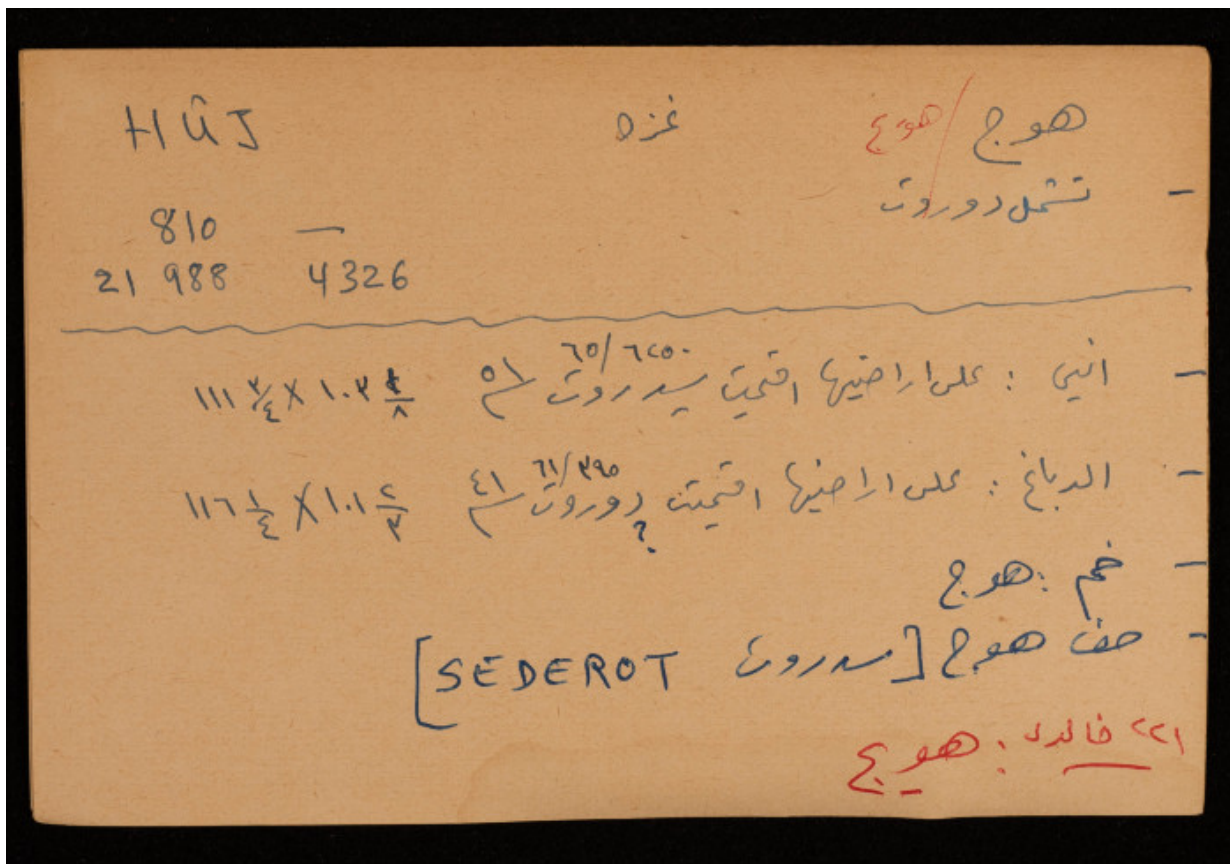 هوج / هوج غزة HÛJ
- تشمل دوروت
810 —
21 988 4326
- انيس : على اراضيها اقيمت سيدروت ٦٢٥٠/٦٥ ٥١ ١١١ ٣/٤ X ١٠٢
- الدباغ : على اراضيها اقيمت دوروت ٣٩٥/٦١ ٤١ ؟ ١١٦ ١/٤ X ١٠١ ٢/٣
- خم : هوج
- صف هوج [سدروت SEDEROT]
٢٢١ خالدي : هوج